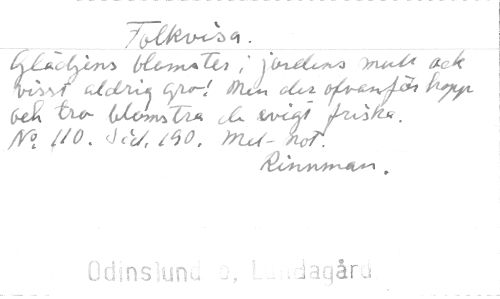 Folkvisa.
Glädjens blomster i jordens mull ack
visst aldrig gro! Men der ofvanför hopp
och tro blomstra de evigt friska.
No. 110. Sid. 190. Mel-not.
Rinnman.
Odinslund o, Lundagård